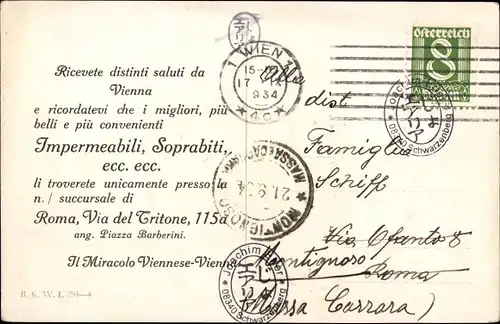 Ricevete distinti saluti da
Vienna
e ricordatevi che i migliori, più
belli e più convenienti
Impermeabili, Soprabiti,
ecc. ecc.
li troverete unicamente presso la
n./ succursale di
Roma, Via del Tritone, 115a
ang. Piazza Barberini.
Il Miracolo Viennese-Vienna
B. K. W. I.
1 WIEN 1
15-
17
934
* 4c *
Österreich
8
Alla
dist.
Famiglia
Schiff
Via Ofanto 8
Montignoso
Roma
(Massa Carrara)
MONTIGNOSO
21.9.34
Joachim
* 08340 Schwarzenberg *
Joachim
* 08340 Schwarzenberg *